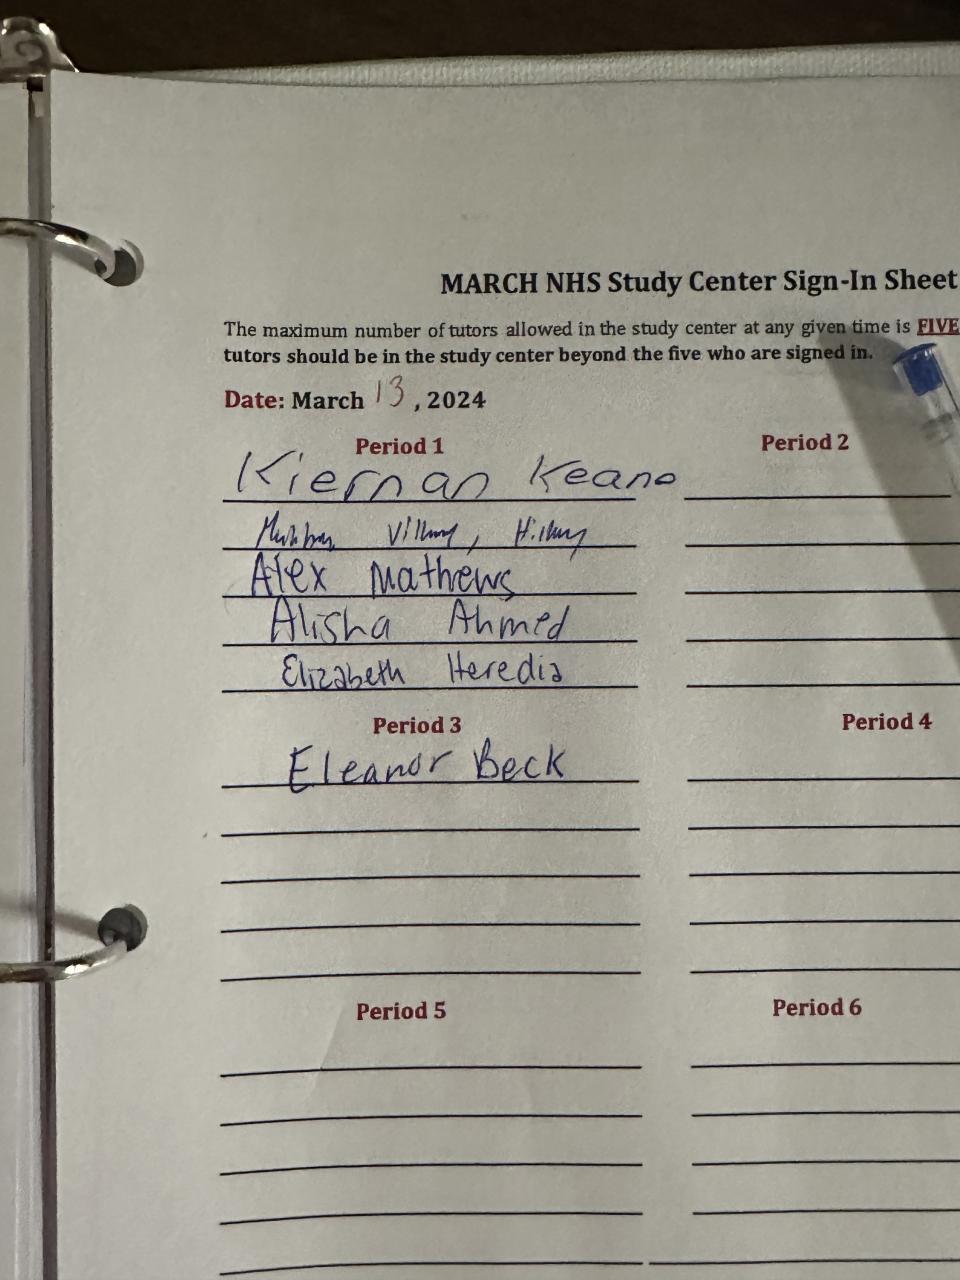 MARCH NHS Study Center Sign-In Sheet
The maximum number of tutors allowed in the study center at any given time is FIVE
tutors should be in the study center beyond the five who are signed in.
Date: March 13, 2024
Period 1 Period 2
Kiernan Keane
Alex Mathews
Alisha Ahmed
Elizabeth Heredia
Period 3 Period 4
Eleanor Beck
Period 5 Period 6